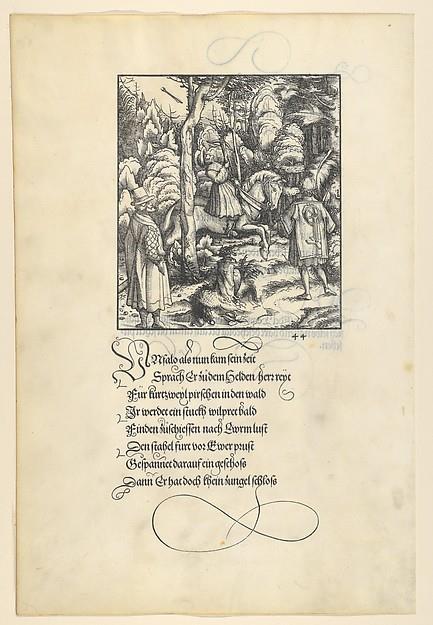 44
Unsalo als nun kam sein zeit
Sprach Er zu dem Helden herr reyt
Fur kurtzweyl pirschen in den wald
Ir werdet ein stuckh wilpret bald
Finden zuschiessen nach Ewrm lust
Den stahel furt vor Ewer prust
Gespannet darauf ein geschoß
Dann Er hat doch khein zungel schloß